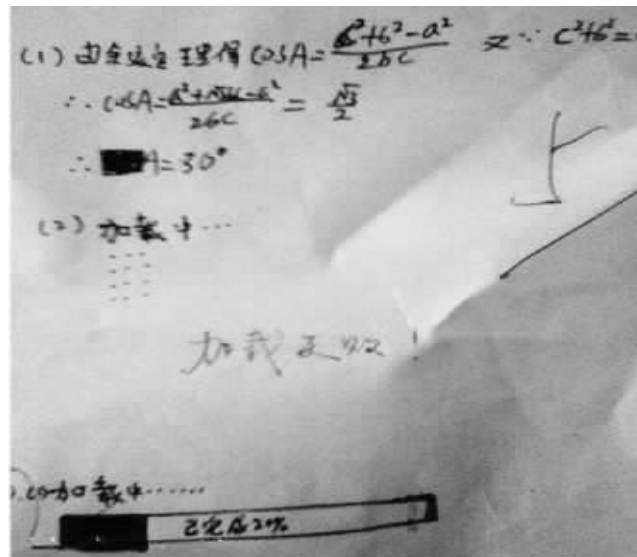 (1) 由余弦定理得 cosA=\frac{c²+b²-a²}{2bc} 又∵ c²+b²=
∴ cosA=\frac{a²+√3bc-a²}{2bc} = \frac{√3}{2}
∴ A=30°
(2) 加载中……
加载失败!
加载中……
已完成20%